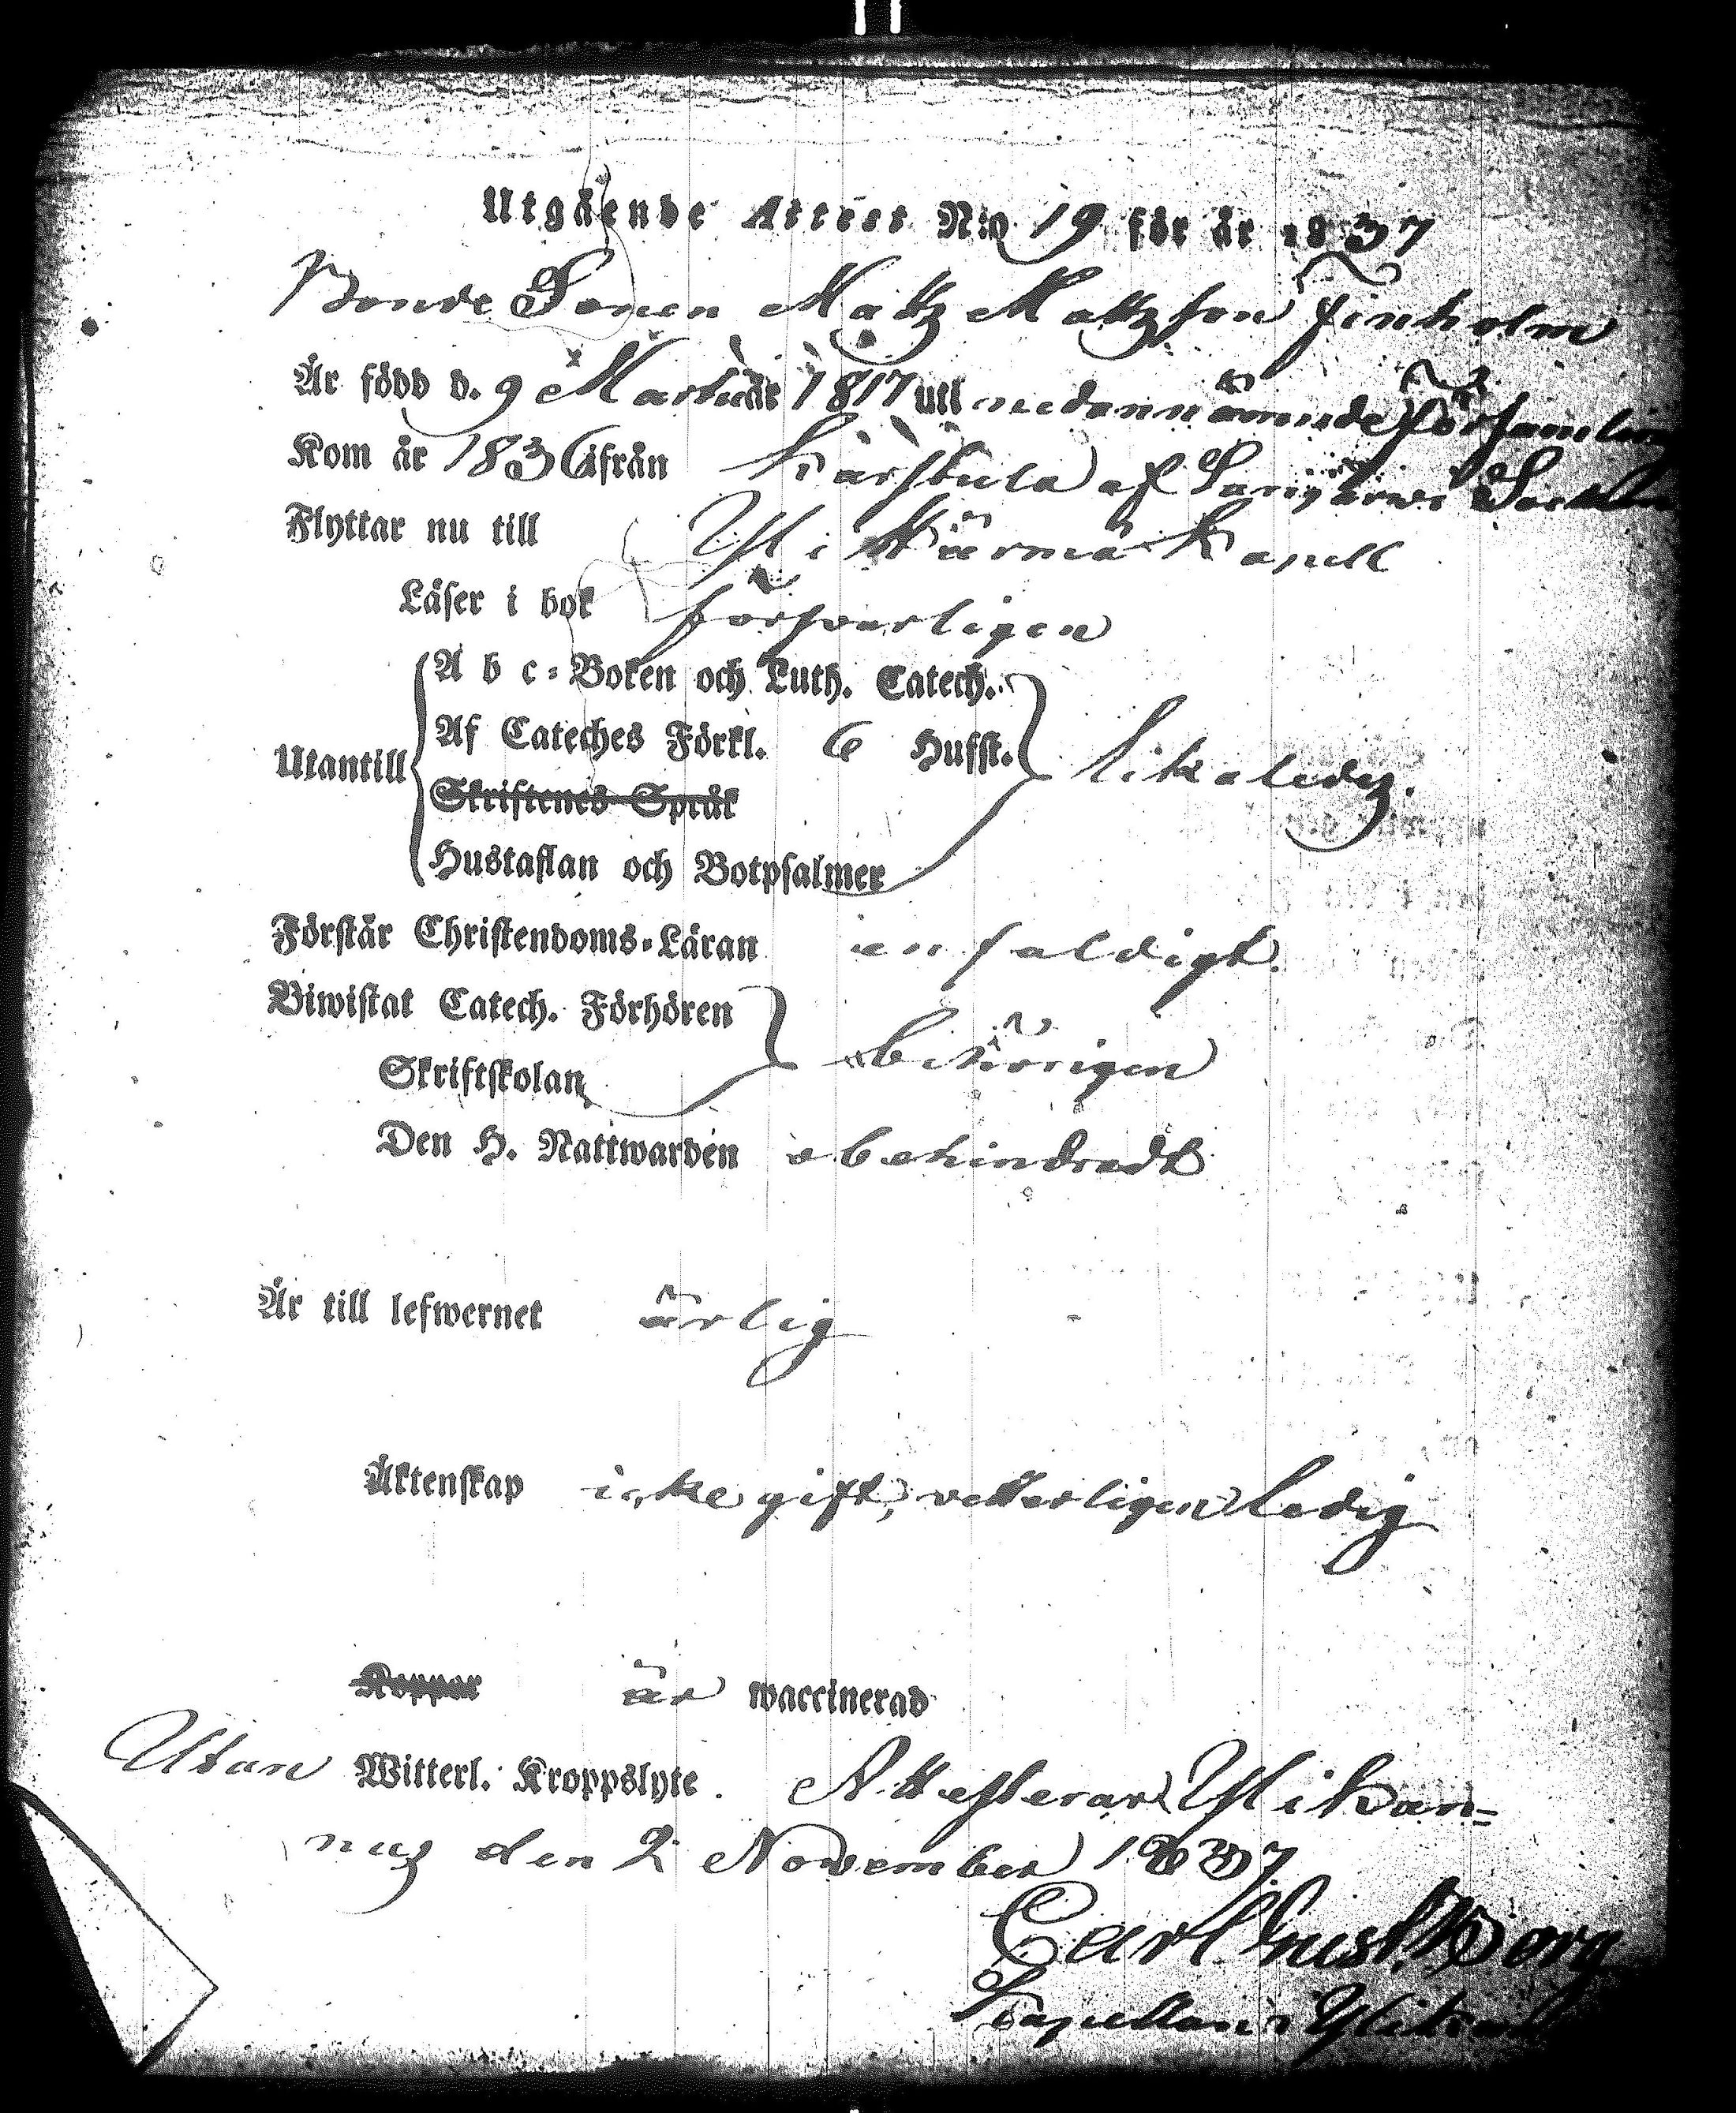 Utgående Attest N:o 19 för år 1837
Bonde Sonen Matts Mattsson Finholm
Är född d. 9 Martii år 1817 uti nedannämnde Församling
Kom år 1836 ifrån Karstula af Saarijärvi Socken
Flyttar nu till Ylistärmä Kapell
Läser i bok försvarligen
A b c-Boken och Luth. Catech.
Af Cateches Förkl. 6 Hufst.
Utantill likaledes.
Skriftenes Språk
Hustaflan och Botpsalmer
Förstår Christendoms-Läran enfaldigt.
Biwistat Catech. Förhören
behörigen
Skriftskolan
Den H. Nattwarden obehindradt
Är till lefwernet ärlig
Äktenskap icke gift, vetterligen ledig
Koppor är waccinerad
Utan Witterl. Kroppslyte. Attesterar Ylikan-
nus den 2 November 1837.
Carl Gust. Borg
Kapellan i